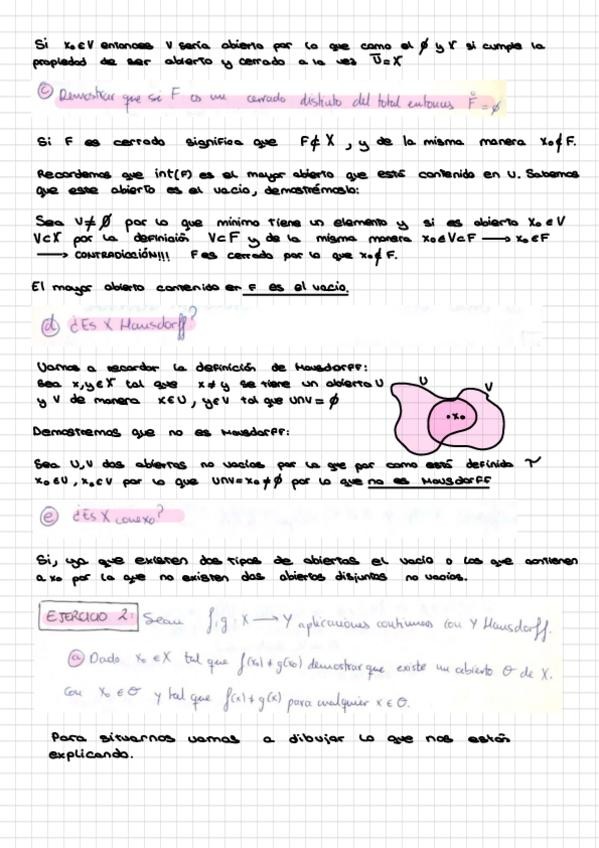 Si x₀∈V entonces V sería abierto por lo que como el ∅ y X si cumple la
propiedad de ser abierto y cerrado a la vez V̄=X
c) Demostrar que si F es un cerrado distinto del total entonces F̊=∅
Si F es cerrado significa que F≠X, y de la misma manera x₀∉F.
Recordemos que int(F) es el mayor abierto que está contenido en U. Sabemos
que este abierto es el vacío, demostrémoslo:
Sea V≠∅ por lo que mínimo tiene un elemento y si es abierto x₀∈V
V⊂X por la definición V⊂F y de la misma manera x₀∈V⊂F ⟶ x₀∈F
⟶ CONTRADICCIÓN!!! F es cerrado por lo que x₀∉F.
El mayor abierto contenido en F es el vacío.
d) ¿Es X Hausdorff?
Vamos a recordar la definición de Hausdorff:
Sea x,y∈X tal que x≠y se tiene un abierto U
y V de manera x∈U, y∈V tal que U∩V=∅
U V
·x₀
Demostremos que no es Hausdorff:
Sea U,V dos abiertos no vacíos por lo que por como está definida τ
x₀∈U, x₀∈V por lo que U∩V=x₀≠∅ por lo que no es Hausdorff
e) ¿Es X conexo?
Si, ya que existen dos tipos de abiertos el vacío o los que contienen
a x₀ por lo que no existen dos abiertos disjuntos no vacíos.
EJERCICIO 2: Sean f,g: X ⟶ Y aplicaciones continuas con Y Hausdorff.
a) Dado x₀∈X tal que f(x₀)≠g(x₀) demostrar que existe un abierto O de X.
con x₀∈O y tal que f(x)≠g(x) para cualquier x∈O.
Para situarnos vamos a dibujar lo que nos están
explicando.